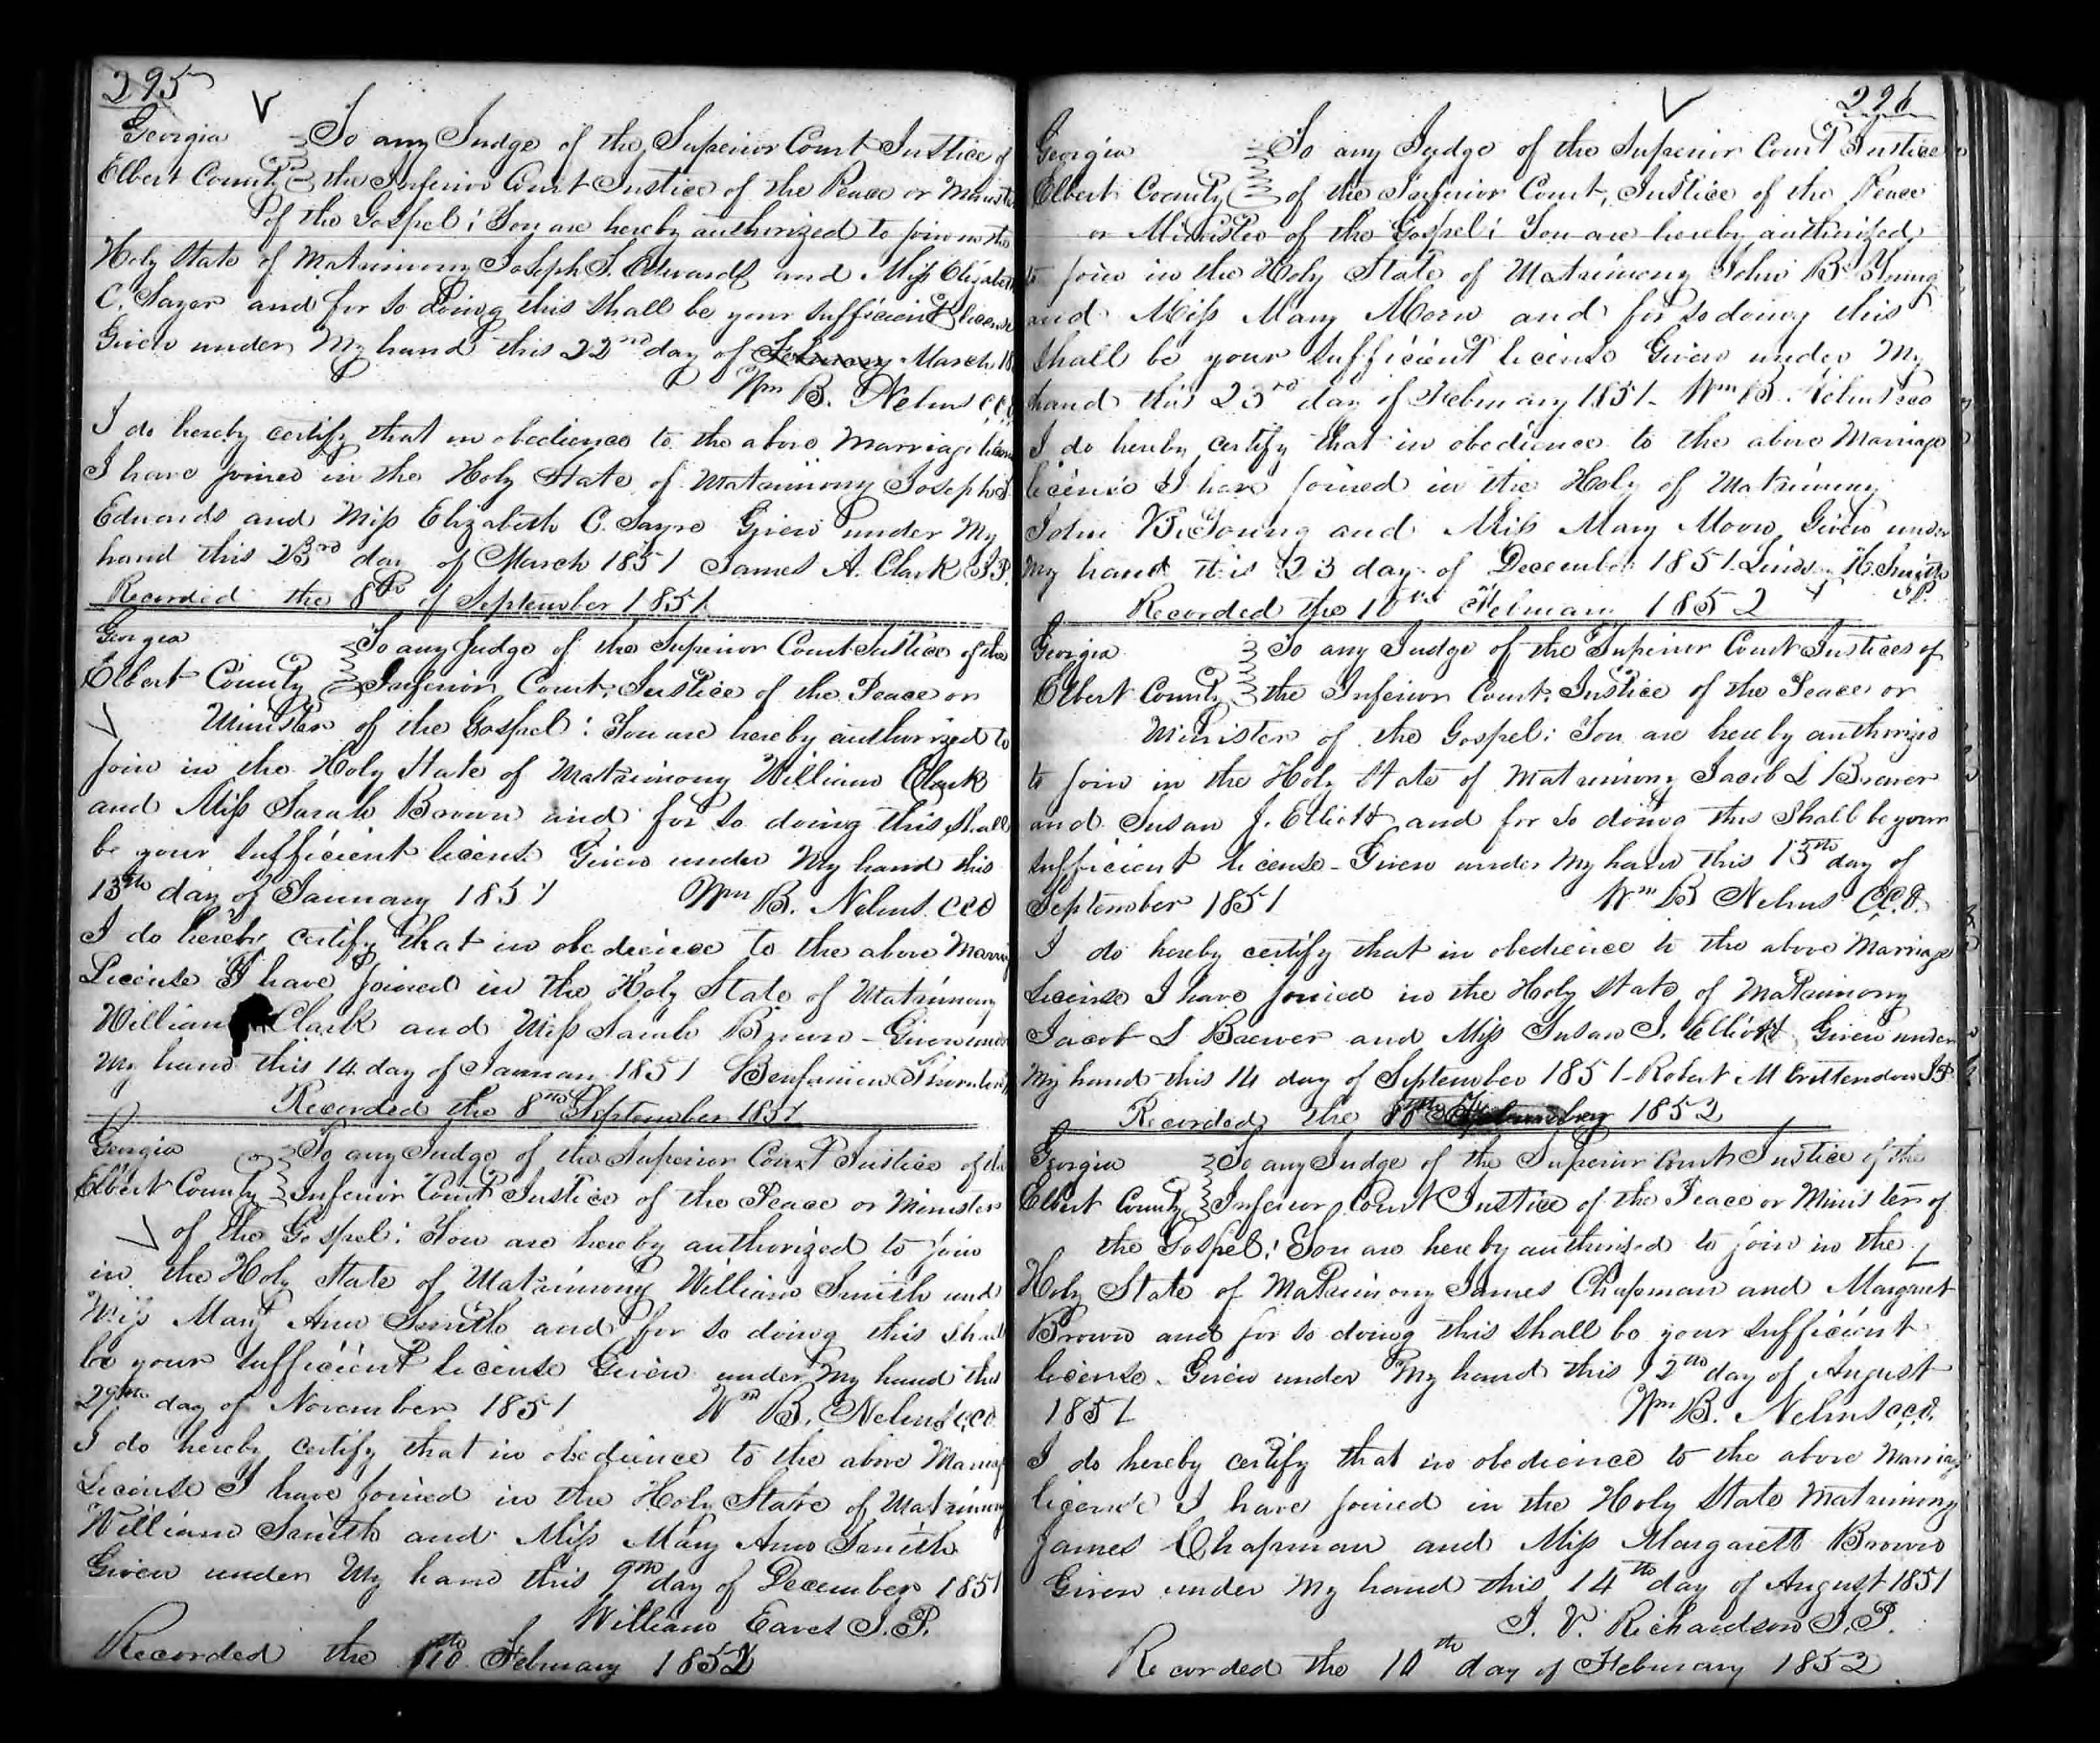 295
Georgia To any Judge of the Superior Court Justice of
Elbert County the Inferior Court Justice of the Peace or Ministe
of the Gospel; You are hereby authorized to join in the
Holy State of Matrimony Joseph S. Edwards and Miss Elizabeth
C. Sayer and for so doing this shall be your sufficient license
Given under My hand this 22nd day of February March 18
Wm B. Nelms C.C.O.
I do hereby certify that in obedience to the above Marriage licens
I have joined in the Holy State of Matrimony Joseph S.
Edwards and Miss Elizabeth C. Sayre Given under My
hand this 23rd day of March 1851 James A. Clark J.P.
Recorded the 8th of September 1851
Georgia To any Judge of the Superior Court Justice of the
Elbert County Inferior Court, Justice of the Peace or
Minister of the Gospel: You are hereby authorized to
join in the Holy State of Matrimony William Clark
and Miss Sarah Brown and for so doing this shall
be your sufficient license Given under My hand this
13th day of January 1851 Wm B. Nelms CCO
I do hereby certify that in obedience to the above Marri
License I have joined in the Holy State of Matrimony
William Clark and Miss Sarah Brown - Given under
My hand this 14 day of January 1851 Benjamin Thornton
Recorded the 8th September 1851
Georgia To any Judge of the Superior Court Justice of the
Elbert County Inferior Court Justice of the Peace or Minister
of the Gospel: You are hereby authorized to join
in the Holy State of Matrimony William Smith and
Miss Mary Ann Smith and for so doing this shall
be your sufficient license Given under My hand this
29th day of November 1851 Wm B. Nelms C.C.O.
I do hereby certify that in obedience to the above Marriag
License I have joined in the Holy State of Matrimony
William Smith and Miss Mary Ann Smith
Given under My hand this 9th day of December 1851
William Eaves J.P.
Recorded the 10th February 1852
296
Georgia To any Judge of the Superior Court Justice
Elbert County of the Inferior Court, Justice of the Peace
or Minister of the Gospel; You are hereby authorized
to join in the Holy State of Matrimony John B. Young
and Miss Mary Moon and for so doing this
shall be your sufficient license Given under My
hand this 23rd day of February 1851 - Wm B. Nelms cco
I do hereby certify that in obedience to the above Marriage
license I have joined in the Holy of Matrimony
John B. Young and Miss Mary Moon Given under
My hand this 23 day of December 1851. H. Smith
J.P.
Recorded the 10th February 1852
Georgia To any Judge of the Superior Court Justices of
Elbert County the Inferior Court, Justice of the Peace or
Minister of the Gospel: You are hereby authorized
to join in the Holy State of Matrimony Jacob L Brewer
and Susan J. Elliott and for so doing this shall be your
sufficient license - Given under My hand this 13th day of
September 1851 Wm B Nelms C.C.O.
I do hereby certify that in obedience to the above Marriage
License I have joined in the Holy State of Matrimony
Jacob L Brewer and Miss Susan J. Elliott Given under
My hand this 14 day of September 1851 - Robert M Crittendon J.P.
Recorded the 1852
Georgia To any Judge of the Superior Court Justice of the
Elbert County Inferior Court Justice of the Peace or Minister of
the Gospel; You are hereby authorized to join in the
Holy State of Matrimony James Chapman and Margaret
Brown and for so doing this shall be your sufficient
license. Given under My hand this 12th day of August
1851 Wm B. Nelms C.C.O.
I do hereby certify that in obedience to the above Marriage
license I have joined in the Holy State Matrimony
James Chapman and Miss Margarett Brown
Given under My hand this 14th day of August 1851
J. V. Richardson J.P.
Recorded the 10th day of February 1852